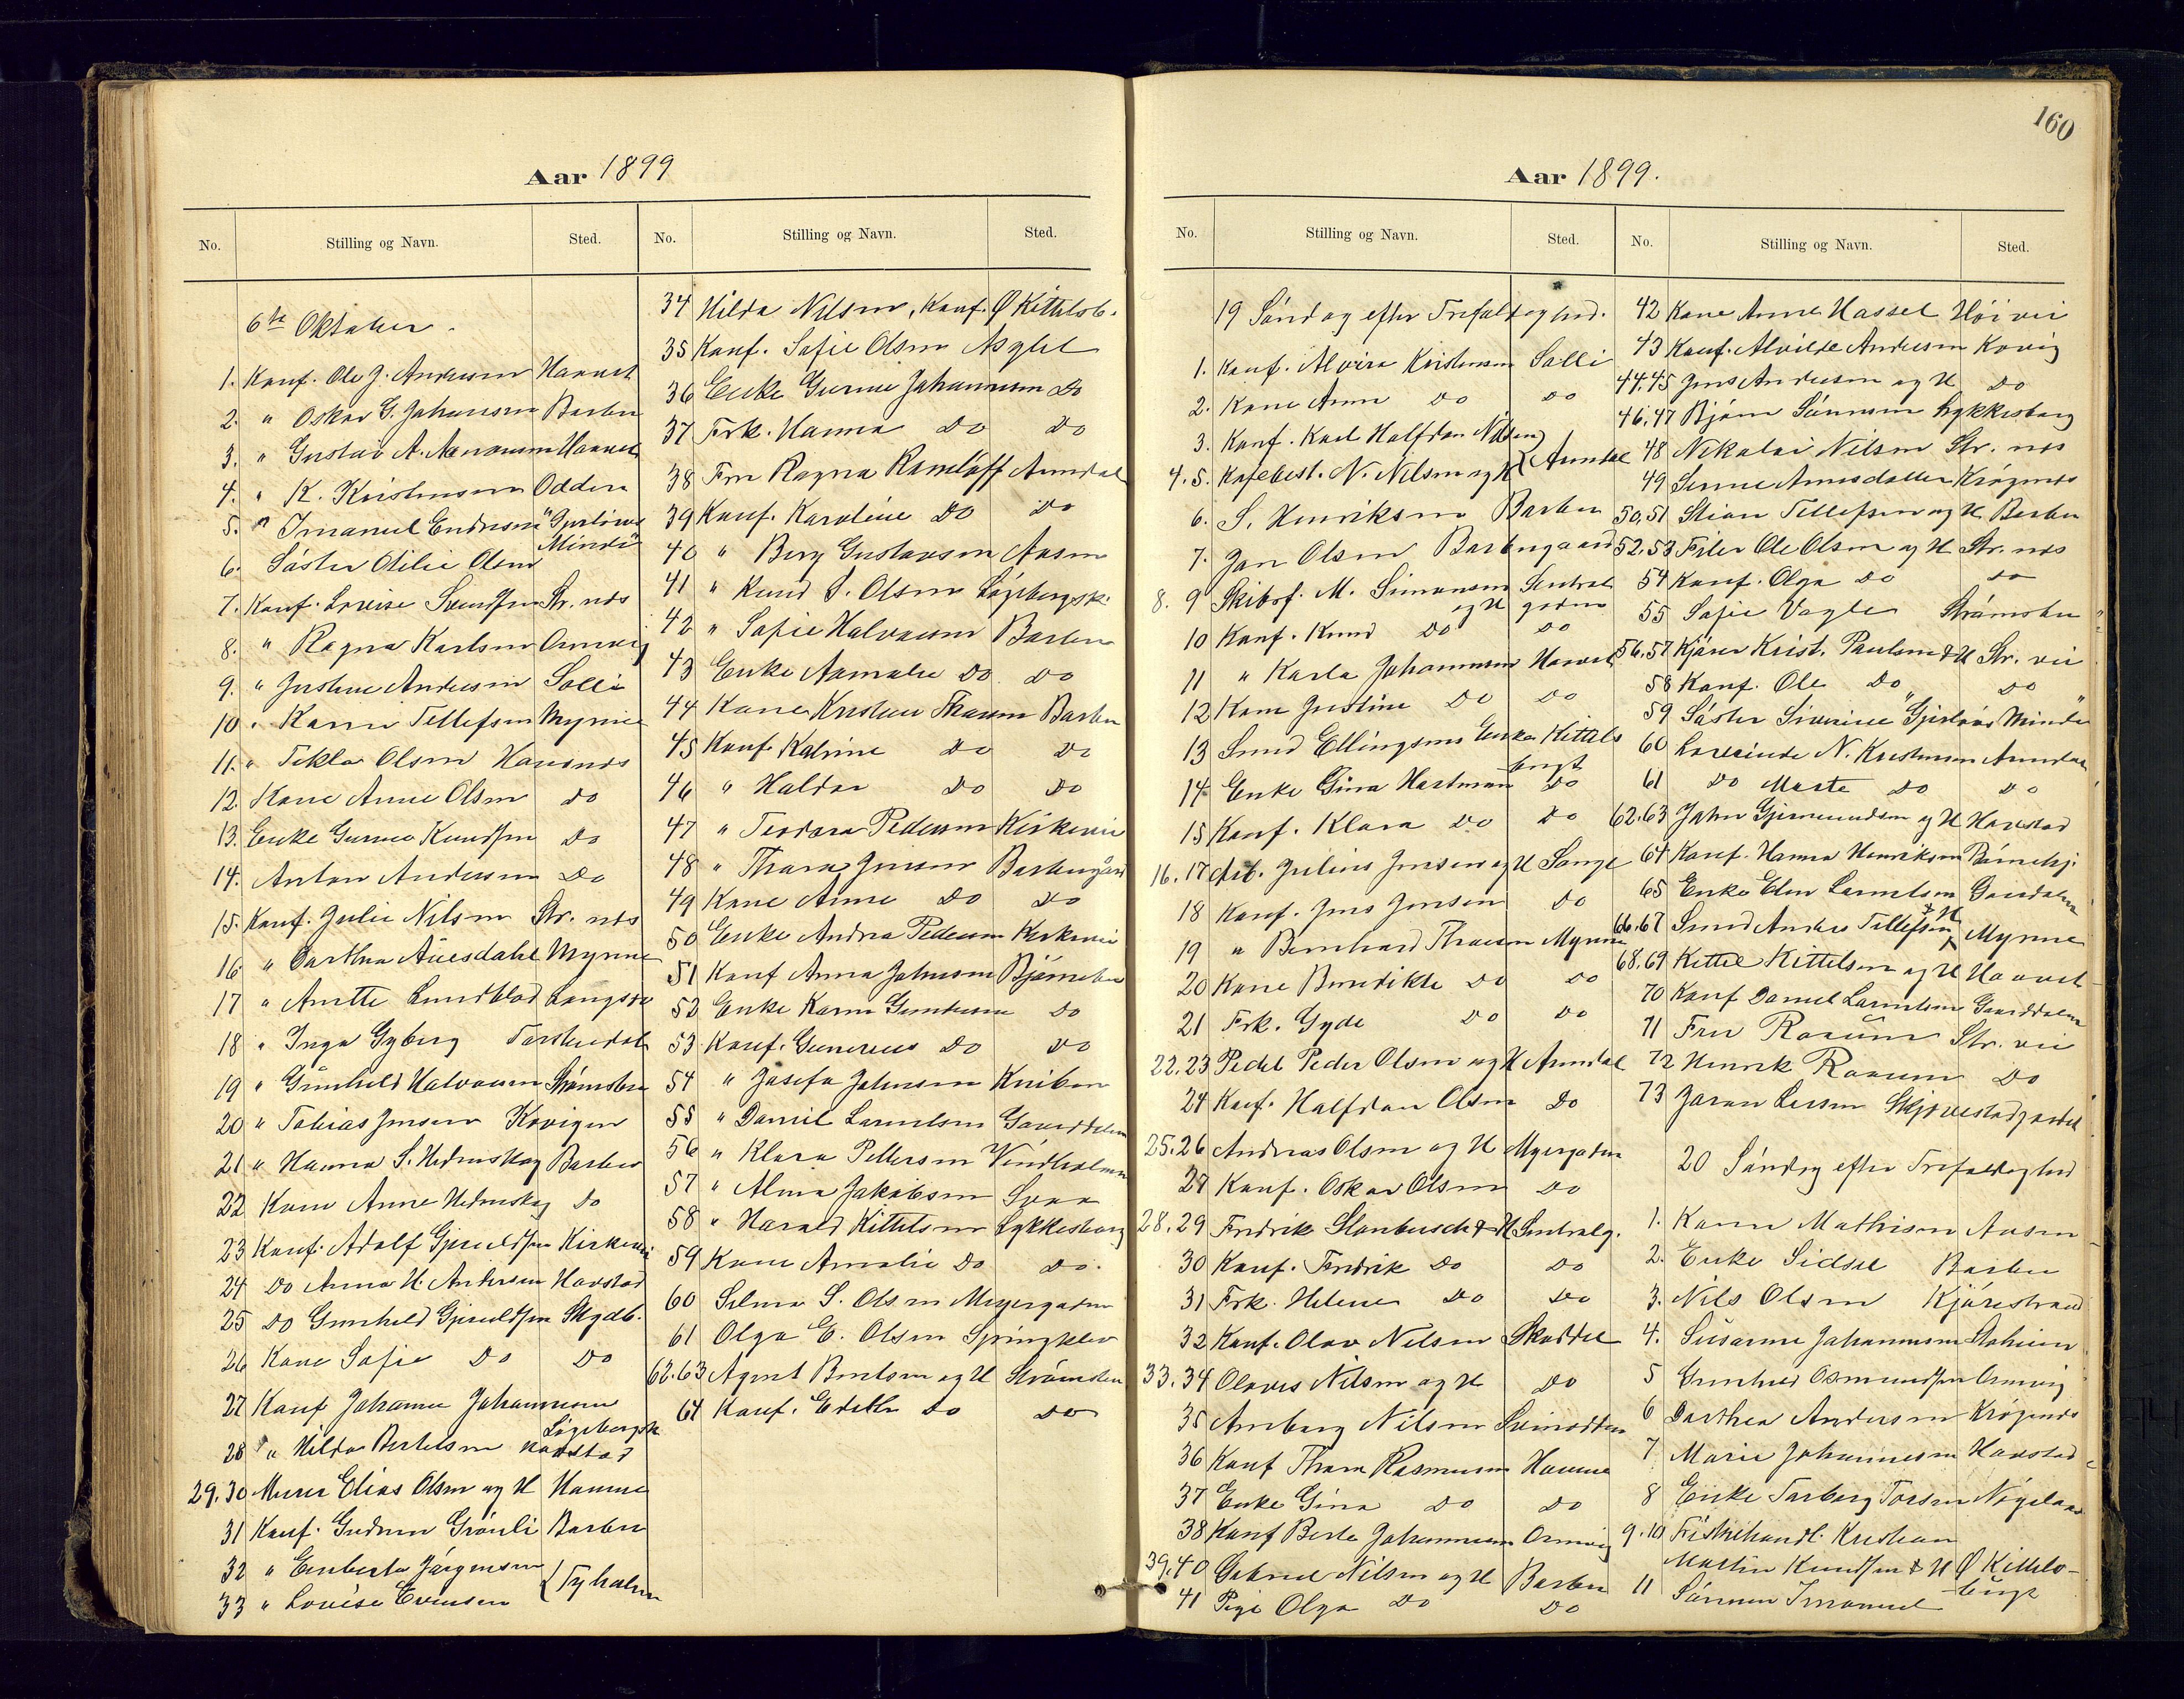 160
Aar 1899
No. Stilling og Navn. Sted.
6te Oktober.
1. Konf. Ole J. Andersen
2. " Oskar G. Johansen Barbu
3. " Gustav A.
4. " K. Kristensen Odden
5. " Imanuel Endresen "Gjerløws
Minde"
6. Søster Otilie Olsen
7. Konf. Lovise Svendsen Str. nds
8. " Ragna Karlsen Ormvig
9. " Justine Andersen Solli
10. " Karen Tellefsen Myrene
11. " Tekla Olsen Havsnds
12. Kone Anne Olsen do
13. Enke Gurine Knudsen do
14. Anton Andersen Do
15. Konf. Julie Nilsen Str. nds
16. " Dorthea Myrene
17 " Anette Lundblad Langsæ
18 " Inga Gyberg
19 " Gunhild Halvorsen Strømsbu
20 " Tobias Jensen Kovigen
21 " Hanna S. Hedenskog Barbu
22 Kone Anne Hedenskog Do
23 Konf. Adolf Gjeruldsen Kirkevei
24 Do Anna H. Andersen Havstad
25 Do Gunhild Gjeruldsen Skydb.
26 Kone Sofie Do Do
27 Konf Johanne Johannesen
Løgebergsk
28 " Hilda Bertelsen Havstad
29.30 Murer Elias Olsen og H
31 Konf. Gudrun Grønli Barbu
32 " Emberta Jørgensen
33 " Lovise Evensen } Tyholm
No. Stilling og Navn. Sted.
34 Hilda Nilsen, Konf. Ø Kittelsb.
35 Konf. Sofie Olsen Asylet
36 Enke Gurine Johannesen Do
37 Frk. Hanna Do Do
38 Fru Ragna Ramløff Arendal
39 Konf. Karoline Do Do
40 " Berg Gustavsen Aasen
41 " Knud S. Olsen Løgebergsk.
42 " Sofie Halvorsen Barbu
43 Enke Aamalie Do Do
44 Kone Kristine Thorsen Barbu
45 Konf. Katrine Do Do
46 " Haldor Do Do
47 " Teodora Pedersen Kirkevei
48 " Thora Jensen Barbugård
49 Kone Anne Do Do
50 Enke Andrea Pedersen Kirkevei
51 Konf Anna Johnsen Bjørnebu
52 Enke Karen Gundersen Do
53 Konf. Gunerius Do Do
54 " Josefa Johnsen
55 " Daniel Larentsen Gaarddalen
56 " Klara Pettersen Vindholmen
57 " Alma Jakobsen
58 " Harald Kittelsen Lykkesborg
59 Kone Amalie Do Do.
60 Selma S. Olsen Meyergaden
61 Olga E. Olsen Springklev
62.63 Agent Bentsen og H Strømsbu
64 Konf. Edith Do Do
Aar 1899.
No. Stilling og Navn. Sted.
19 Søndag efter Trefoldoghed.
1. Konf. Alvira Kristensen Solli
2. Kone Anne Do Do
3. Konf. Karl Halfdan Nilsen
4.5. N. Nilsen og H } Arendal
6. S. Henriksen Barbu
7. Jan Olsen Barbugaard
8. 9 Skibsf. M. Simonsen Sentral
og H gaden
10 Konf. Knud Do Do
11 " Karla Johannesen
12 Kone Justine Do Do
13 Smed Ellingsens Enke Kittels
bugt
14 Enke Gina Hartman Do
15 Konf. Klara Do Do
16.17 Arb. Julius Jensen og H Songe
18 Konf. Jens Jensen Do
19 " Bernhard Thorsen Myrene
20 Kone Benedikte Do Do
21 Frk. Gyde Do Do
22.23 Pedel Peder Olsen og H Arendal
24 Konf. Halfdan Olsen Do
25.26 Andreas Olsen og H Myergaden
27 Konf. Oskar Olsen Do
28.29 Fredrik Stanbusch & H Sentralg.
30 Konf. Fredrik Do Do
31 Frk. Helene Do Do
32 Konf. Olav Nilsen Skoddel
33.34 Olaves Nilsen og H Do
35 Anborg Nilsen Svinodden
36 Konf Thom Rasmusen
37 Enke Gina Do Do
38 Konf Berte Johannesen Ormvig
39.40 Gabriel Nilsen og H Barbu
41 Pige Olga Do Do
No. Stilling og Navn. Sted.
42 Kone Anne Hassel Høivei
43 Konf. Alvilde Andersen Kovig
44.45 Jens Andersen og H Do
46.47 Bjørn Sørensen Lykkesborg
48 Nikolai Nilsen Str. nds
49 Serine Arnesdatter Krøgenes
50.51 Stian Tellefsen og H Barbu
52.53 Filer Ole Olsen og H Str. nds
54 Konf. Olga Do Do
55 Sofie Vagle Strømsbu
56.57 Kjører Krist. Paulsen & H Str. vei
58 Konf. Ole Do Do
59 Søster Siverine "Gjerløws Minde"
60 N. Kristensen Arendal
61 Do Marte Do Do
62.63 John Gjermundsen og H Havstad
64 Konf. Hanna Henriksen
65 Enke Elen Larentsen Gaardalen
66.67 Smed Anders Tellefsen & H Myrene
68.69 Kittel Kittelsen og H
70 Konf Daniel Larentsen Gaarddalen
71 Fru Str. vei
72 Henrik Do
73 Joran Larsen
20 Søndag efter Trefoldoghed
1. Karen Mathisen Aasen
2. Enke Sidsel Barbu
3. Nils Olsen Kjørestrand
4. Susanne Johannesen
5 Gunhild Osmundsen Ormvig
6 Dorthea Andersen Krøgenes
7 Marie Johannesen Havstad
8 Enke Torborg Torsen
9.10 Fiskehandl. Kristian
Martin Knudsen & H Ø Kittels-
bugt
11 Sørensen Imanuel